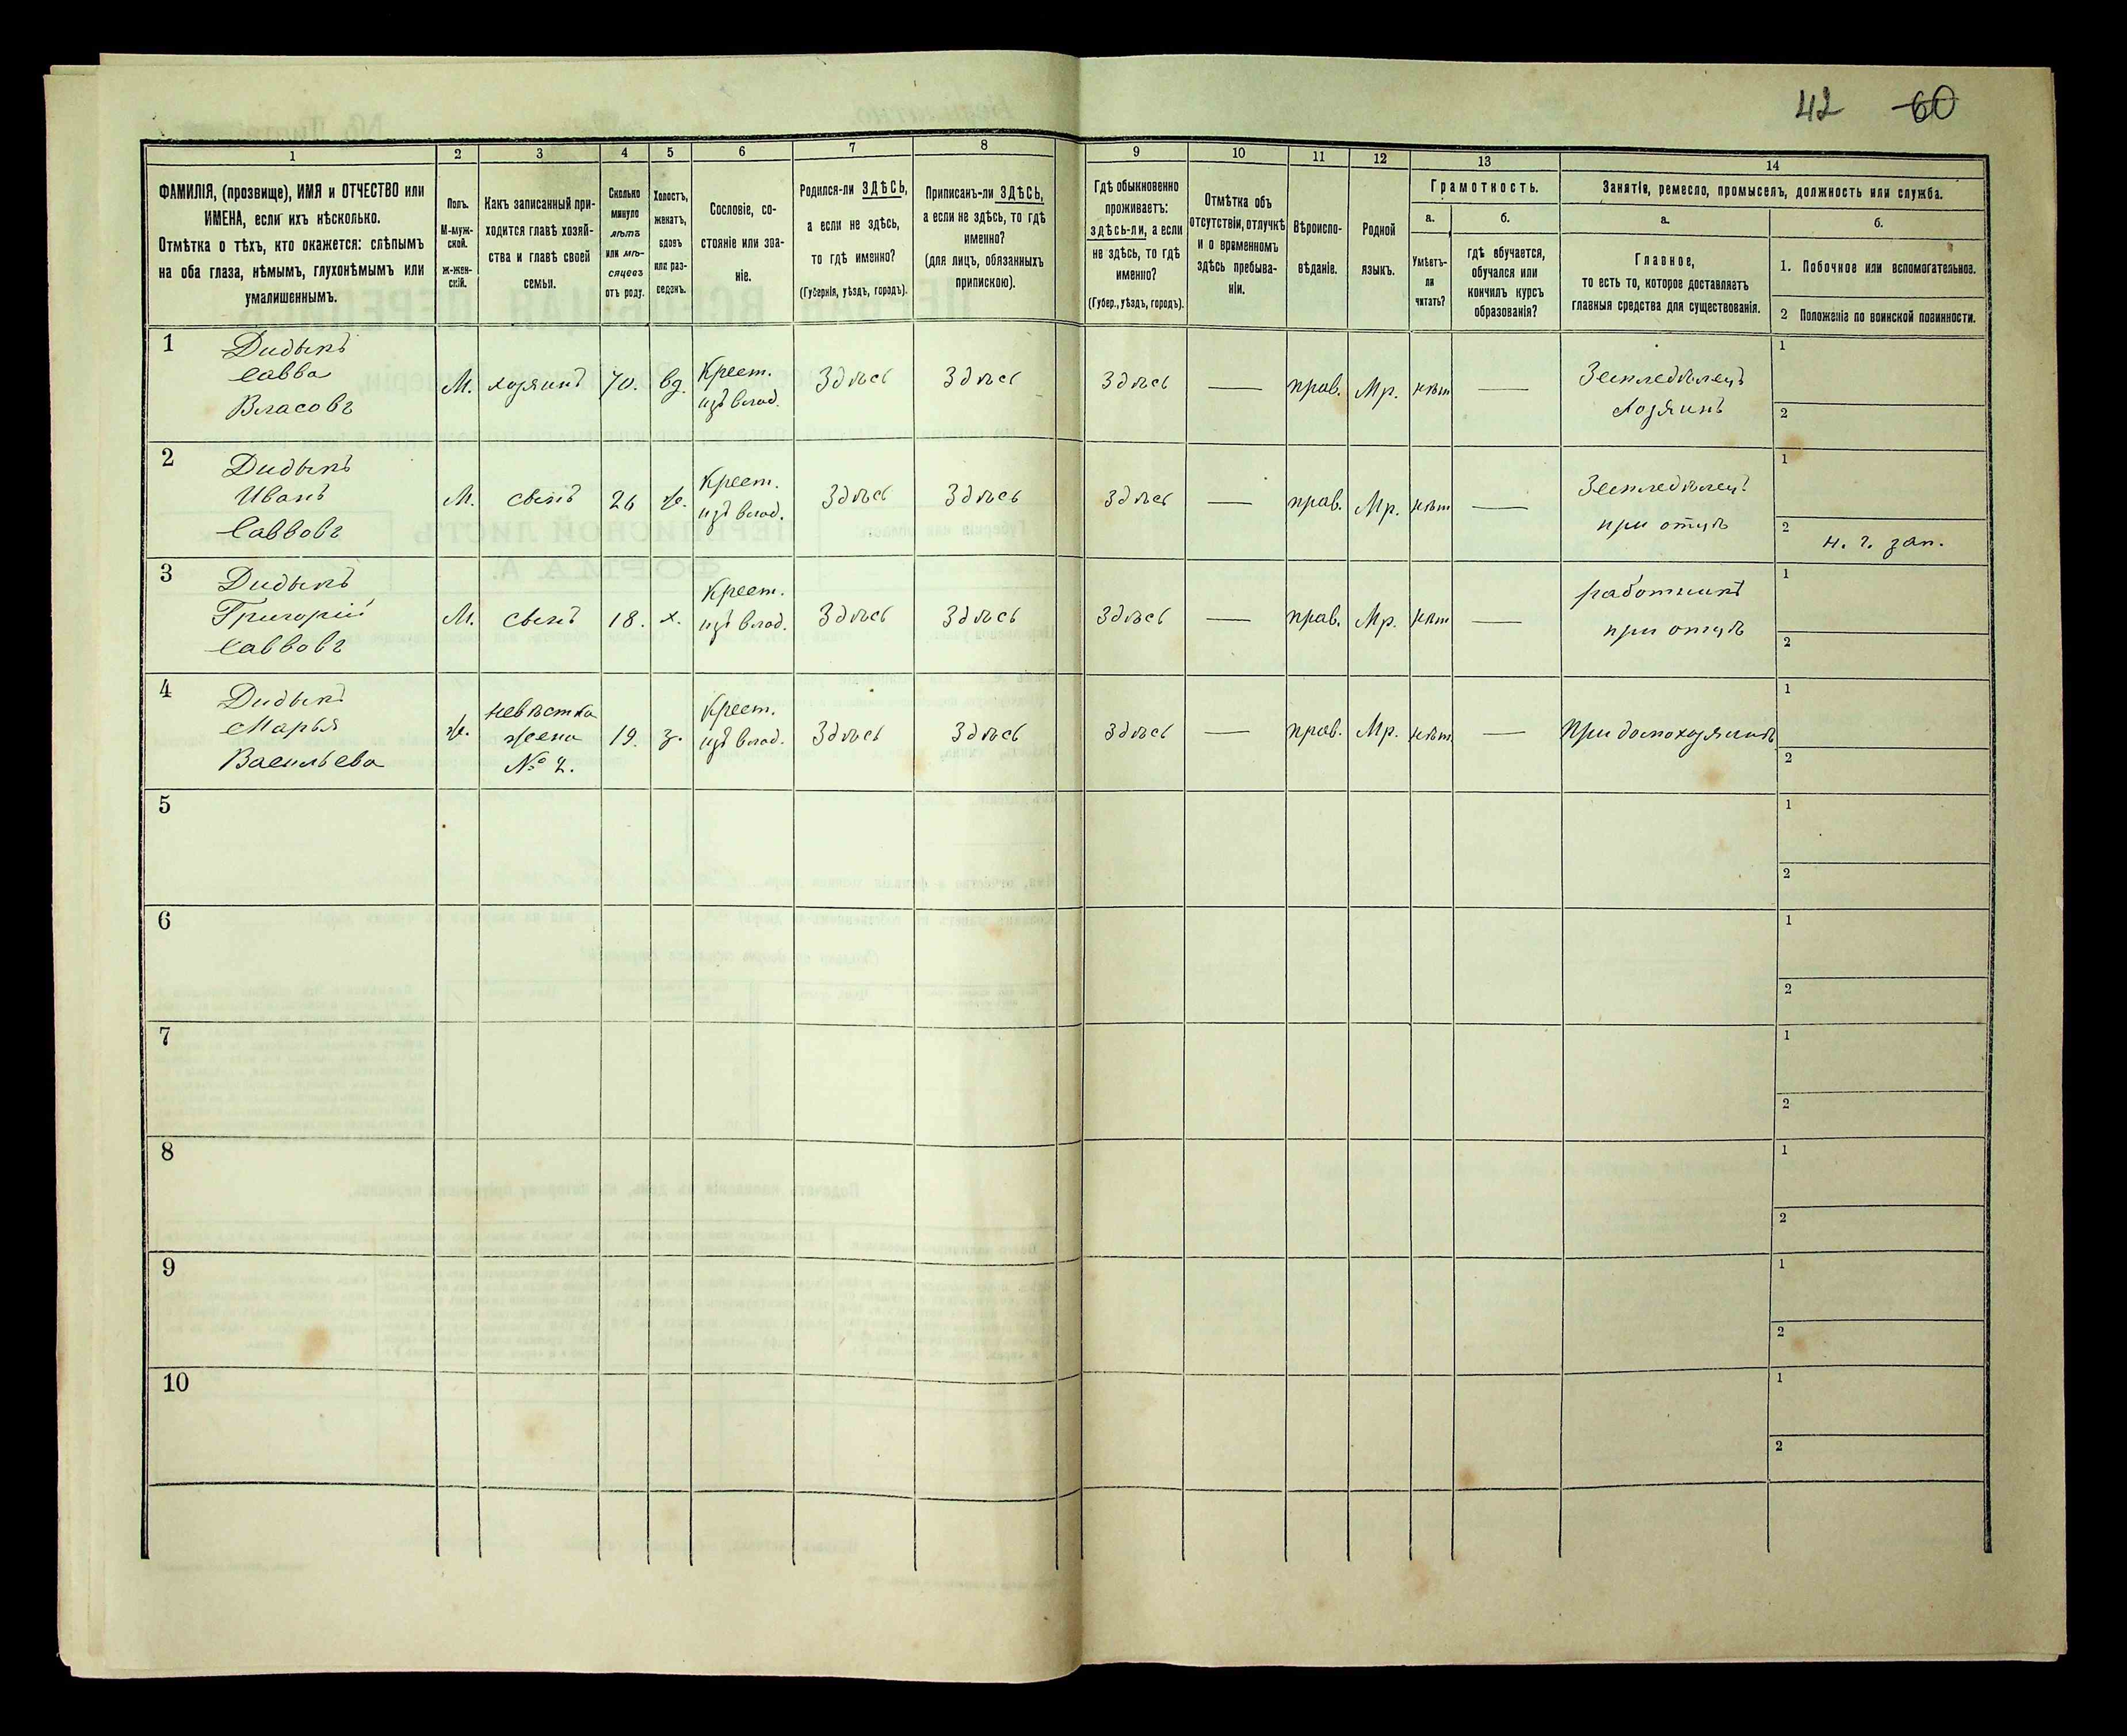 42 60
1 2 3 4 5 6 7 8 9 10 11 12 13 14
ФАМИЛІЯ, (прозвище), ИМЯ и ОТЧЕСТВО или
ИМЕНА, если ихъ нѣсколько.
Отмѣтка о тѣхъ, кто окажется: слѣпымъ
на оба глаза, нѣмымъ, глухонѣмымъ или
умалишеннымъ.
Полъ.
М-муж-
ской.
ж-жен-
скій.
Какъ записанный при-
ходится главѣ хозяй-
ства и главѣ своей
семьи.
Сколько
минуло
лѣтъ
или мѣ-
сяцевъ
отъ роду.
Холостъ,
женатъ,
вдовъ
или раз-
веденъ.
Сословіе, со-
стояніе или зва-
ніе.
Родился-ли ЗДѢСЬ,
а если не здѣсь,
то гдѣ именно?
(Губернія, уѣздъ, городъ).
Приписанъ-ли ЗДѢСЬ,
а если не здѣсь, то гдѣ
именно?
(для лицъ, обязанныхъ
припискою).
Гдѣ обыкновенно
проживаетъ:
здѣсь-ли, а если
не здѣсь, то гдѣ
именно?
(Губер., уѣздъ, городъ).
Отмѣтка объ
отсутствіи, отлучкѣ
и о временномъ
здѣсь пребыва-
ніи.
Вѣроиспо-
вѣданіе.
Родной
языкъ.
Грамотность.
а.
Умѣетъ-
ли
читать?
б.
гдѣ обучается,
обучался или
кончилъ курсъ
образованія?
Занятіе, ремесло, промыселъ, должность или служба.
а.
Главное,
то есть то, которое доставляетъ
главныя средства для существованія.
б.
1. Побочное или вспомогательное.
2 Положеніе по воинской повинности.
1 Дидыкъ
Савва
Власовъ
М. хозяинъ 70. вд. Крест.
изъ влад.
Здѣсь Здѣсь Здѣсь — прав. Мр. нѣт — Земледѣлецъ
хозяинъ
1
2
2 Дидыкъ
Иванъ
Саввовъ
М. сынъ 26 ж. Крест.
изъ влад.
Здѣсь Здѣсь Здѣсь — прав. Мр. нѣт — Земледѣлецъ
при отцѣ
1
2 н. г. зап.
3 Дидыкъ
Григорій
Саввовъ
М. сынъ 18. х. Крест.
изъ влад.
Здѣсь Здѣсь Здѣсь — прав. Мр. нѣт — работникъ
при отцѣ
1
2
4 Дидыкъ
Марья
Васильева
ж. невѣстка
жена
№ 2.
19. з. Крест.
изъ влад.
Здѣсь Здѣсь Здѣсь — прав. Мр. нѣт — При домохозяинѣ
1
2
5
1
2
6
1
2
7
1
2
8
1
2
9
1
2
10
1
2